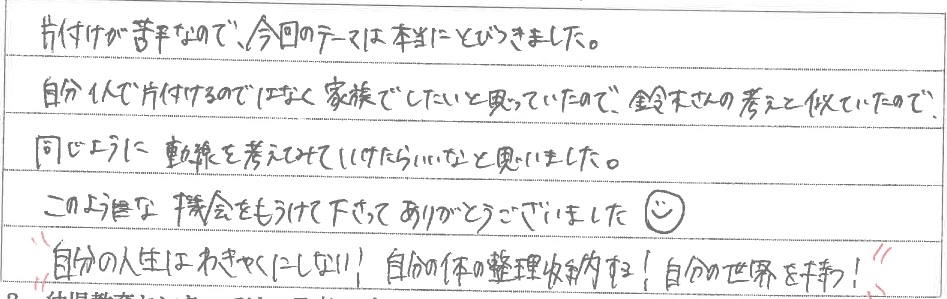 片付けが苦手なので、今回のテーマは本当にとびつきました。
自分1人で片付けるのではなく家族でしたいと思っていたので、鈴木さんの考えと似ていたので、
同じように動線を考えてみていけたらいいなと思いました。
このような機会をもうけて下さってありがとうございました
"自分の人生はわきゃくにしない! 自分の体の整理収納する! 自分の世界を持つ!"